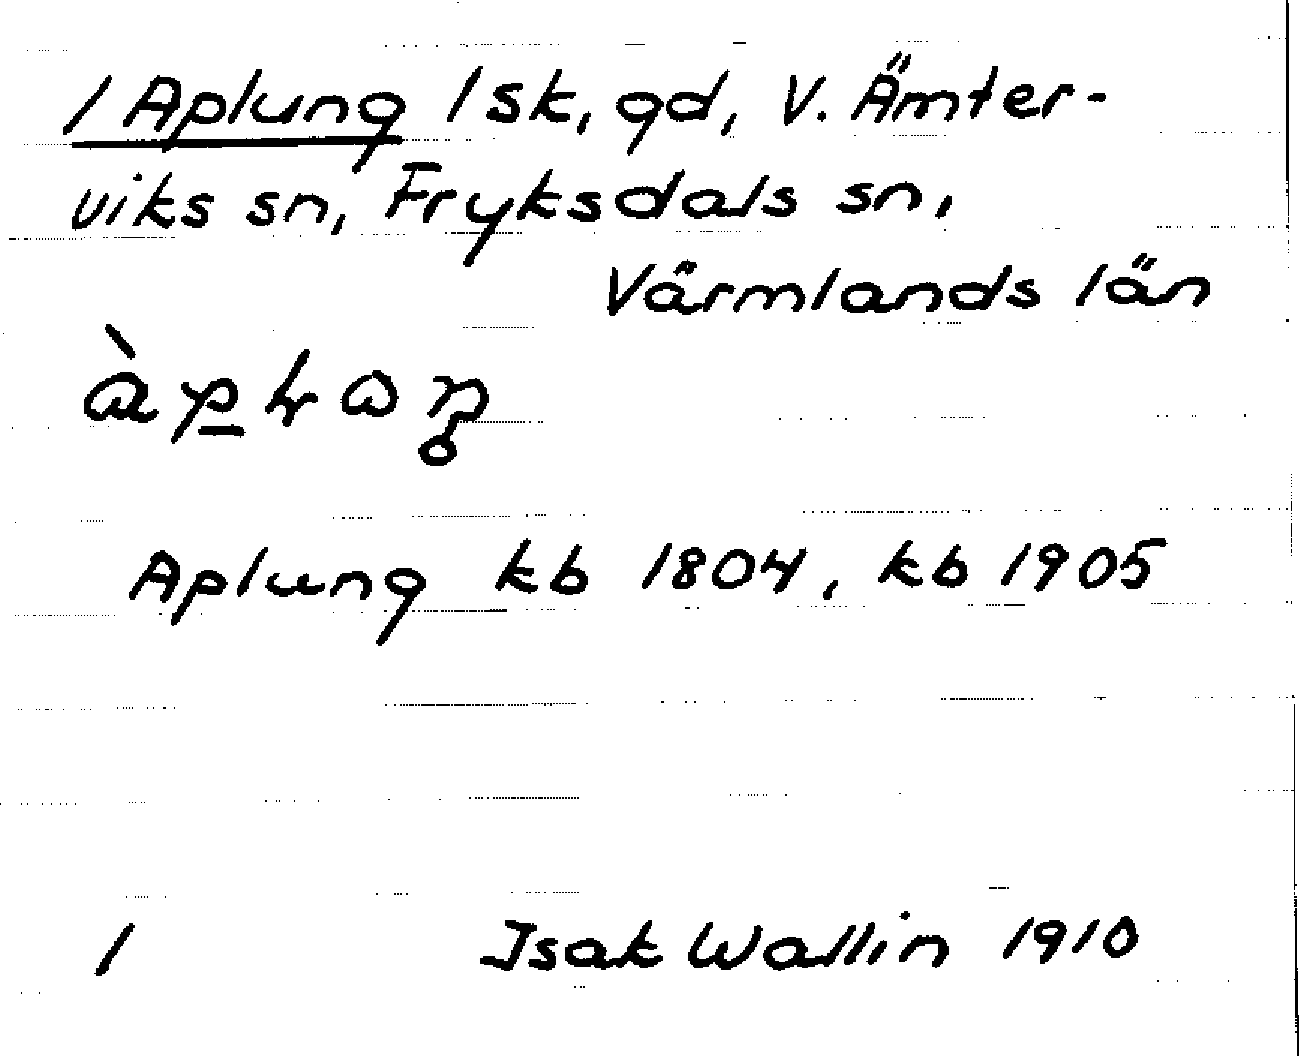 1 Aplung 1 sk, gd, V. Ämter-
viks sn, Fryksdals sn,
Värmlands län
Aplung kb 1804, kb 1905
1 Isak Wallin 1910